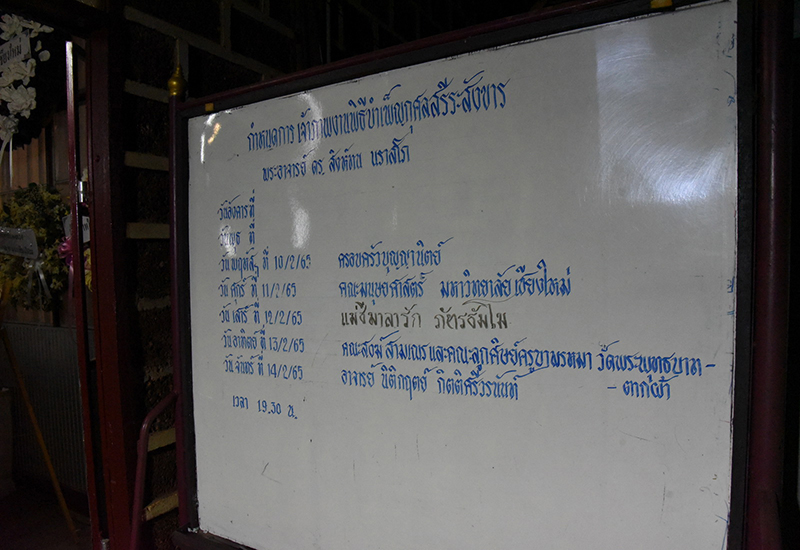 กำหนดการ เจ้าภาพงานพิธีบำเพ็ญกุศลสรีระสังขาร
พระอาจารย์ ดร. สิงห์ทน นราสโภ
วันอังคารที่
วันพุธ ที่
วันพฤหัสฯ ที่ 10/2/65 ครอบครัวบุญญานิตย์
วันศุกร์ ที่ 11/2/65 คณะมนุษยศาสตร์ มหาวิทยาลัยเชียงใหม่
วันเสาร์ ที่ 12/2/65 แม่ชีมาลารัก ภัทรธัมโม
วันอาทิตย์ ที่ 13/2/65 คณะสงฆ์ สามเณร และคณะลูกศิษย์ครูบาพรหมา วัดพระพุทธบาท-
วันจันทร์ ที่ 14/2/65 อาจารย์ นิติกฤตย์ กิตติศรีวรนันท์ - ตากผ้า
เวลา 19.30 น.